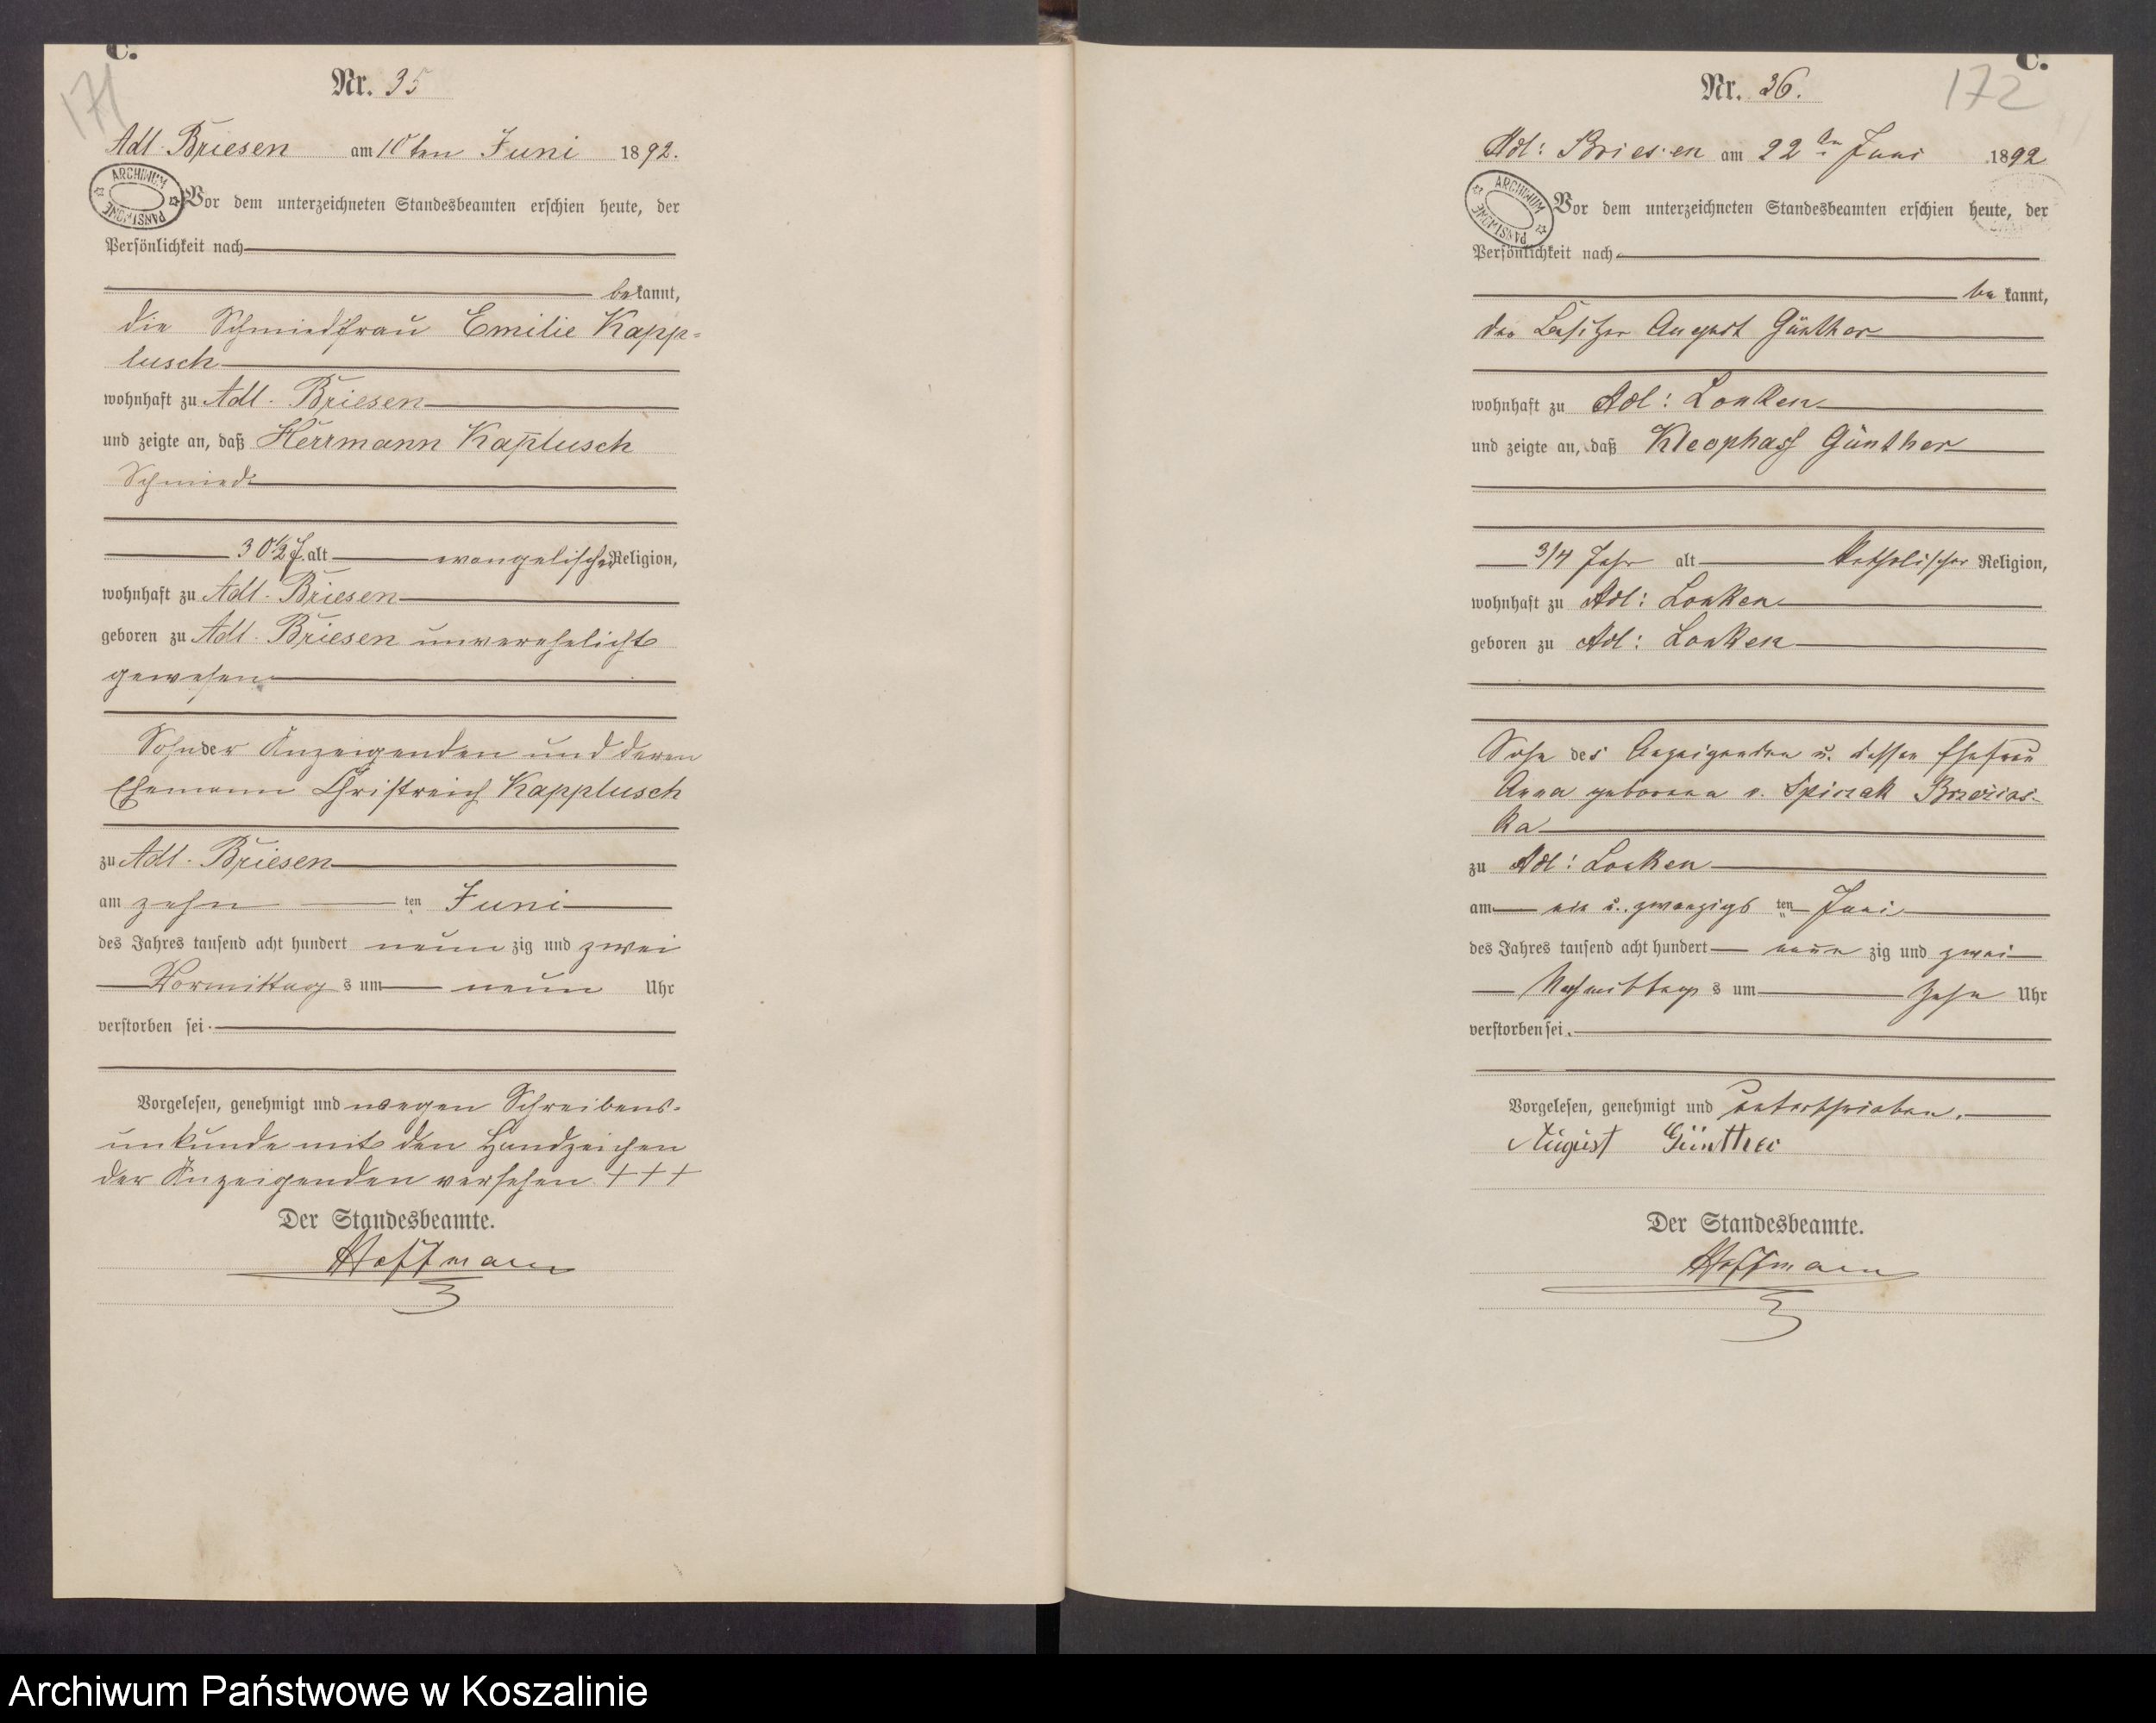 C.
171
Nr. 35
Adl. Briesen am 10ten Juni 1892.
ARCHIWUM PAŃSTWOWE
Vor dem unterzeichneten Standesbeamten erschien heute, der
Persönlichkeit nach
bekannt,
die Schmiedfrau Emilie Kapp-
lusch
wohnhaft zu Adl. Briesen
und zeigte an, daß Herrmann Kaplusch
Schmied
30 1/2 J. alt evangelischer Religion,
wohnhaft zu Adl. Briesen
geboren zu Adl. Briesen unverehelicht
gewesen
Sohn der Anzeigenden und deren
Ehemann Christreich Kapplusch
zu Adl. Briesen
am zehn ten Juni
des Jahres tausend acht hundert neun zig und zwei
Vormittag s um neun Uhr
verstorben sei.
Vorgelesen, genehmigt und wegen Schreibens-
unkunde mit den Handzeichen
der Anzeigenden versehen. +++
Der Standesbeamte.
Hoffmann
C.
172
Nr. 36.
Adl: Briesen am 22ten Juni 1892
ARCHIWUM PAŃSTWOWE
Vor dem unterzeichneten Standesbeamten erschien heute, der
Persönlichkeit nach
be kannt,
der Besitzer August Günther
wohnhaft zu Adl: Lonken
und zeigte an, daß Kleophass Günther
3/4 Jahr alt katholischer Religion,
wohnhaft zu Adl: Lonken
geboren zu Adl: Lonken
Sohn des Anzeigenden u. dessen Ehefrau
Anna geborene v. Spiczak Brzezins-
ka
zu Adl: Lonken
am ein u. zwanzigs ten Juni
des Jahres tausend acht hundert neun zig und zwei
Nachmittag s um zehn Uhr
verstorben sei.
Vorgelesen, genehmigt und unterschrieben.
August Günther
Der Standesbeamte.
Hoffmann
Archiwum Państwowe w Koszalinie